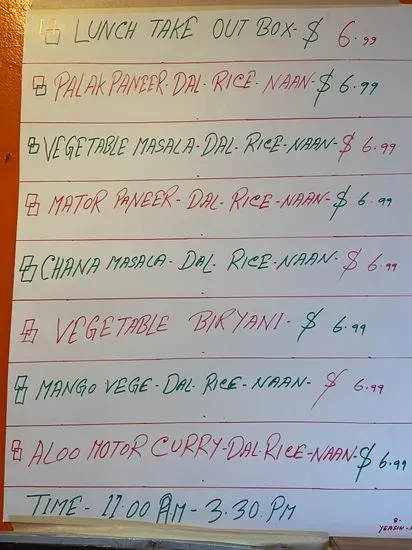 LUNCH TAKE OUT BOX- $ 6.99
PALAK PANEER- DAL- RICE- NAAN- $ 6.99
VEGETABLE MASALA- DAL- RICE- NAAN- $ 6.99
MATOR PANEER- DAL- RICE- NAAN- $ 6.99
CHANA MASALA- DAL- RICE- NAAN- $ 6.99
VEGETABLE BIRYANI- $ 6.99
MANGO VEGE- DAL- RICE- NAAN- $ 6.99
ALOO MOTOR CURRY- DAL- RICE- NAAN- $ 6.99
TIME- 11.00 AM- 3.30. PM